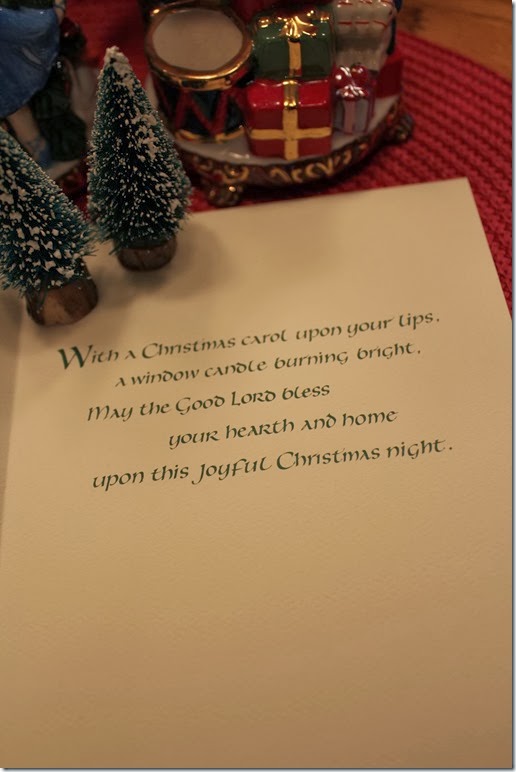 With a Christmas carol upon your lips,
a window candle burning bright,
May the Good Lord bless
your hearth and home
upon this joyful Christmas night.